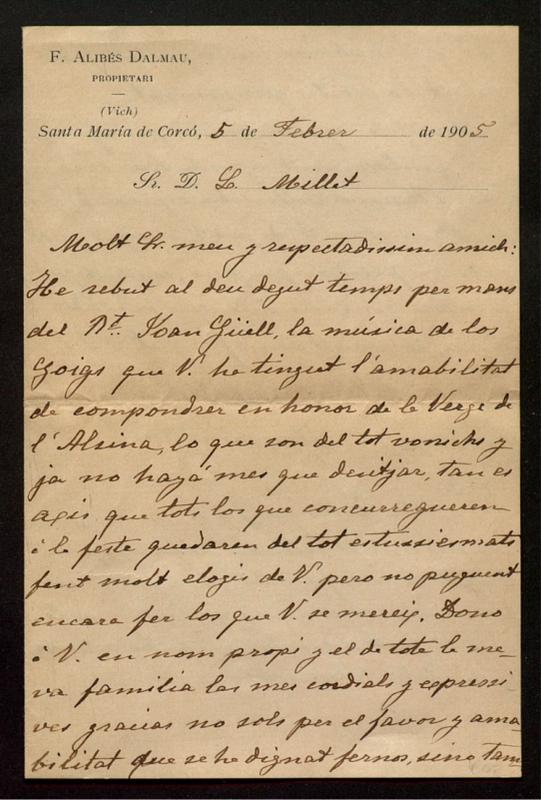 F. Alibés Dalmau,
PROPIETARI
(Vich)
Santa María de Corcó, 5 de Febrer de 1905
Sr. D. L. Millet
Molt Sr. meu y respectadissim amich:
He rebut al deu degut temps per mans
del Rt. Joan Güell, la música de los
Goigs que V. he tingut l'amabilitat
de compondrer en honor de le Verge de
l'Alsina, lo que son del tot bonichs y
ja no hayá mes que desitjar, tan es
axis que tots los que concurregueren
á le feste quedaren del tot estussiesmats
fent molt elogis de V. pero no puguent
encara fer los que V. se mereix. Dono
á V. en nom propi y el de tote le me-
va familia las mes cordials y expressi-
ves gracias no sols per el favor y ama-
bilitat que se he dignat fernos, sino tam-